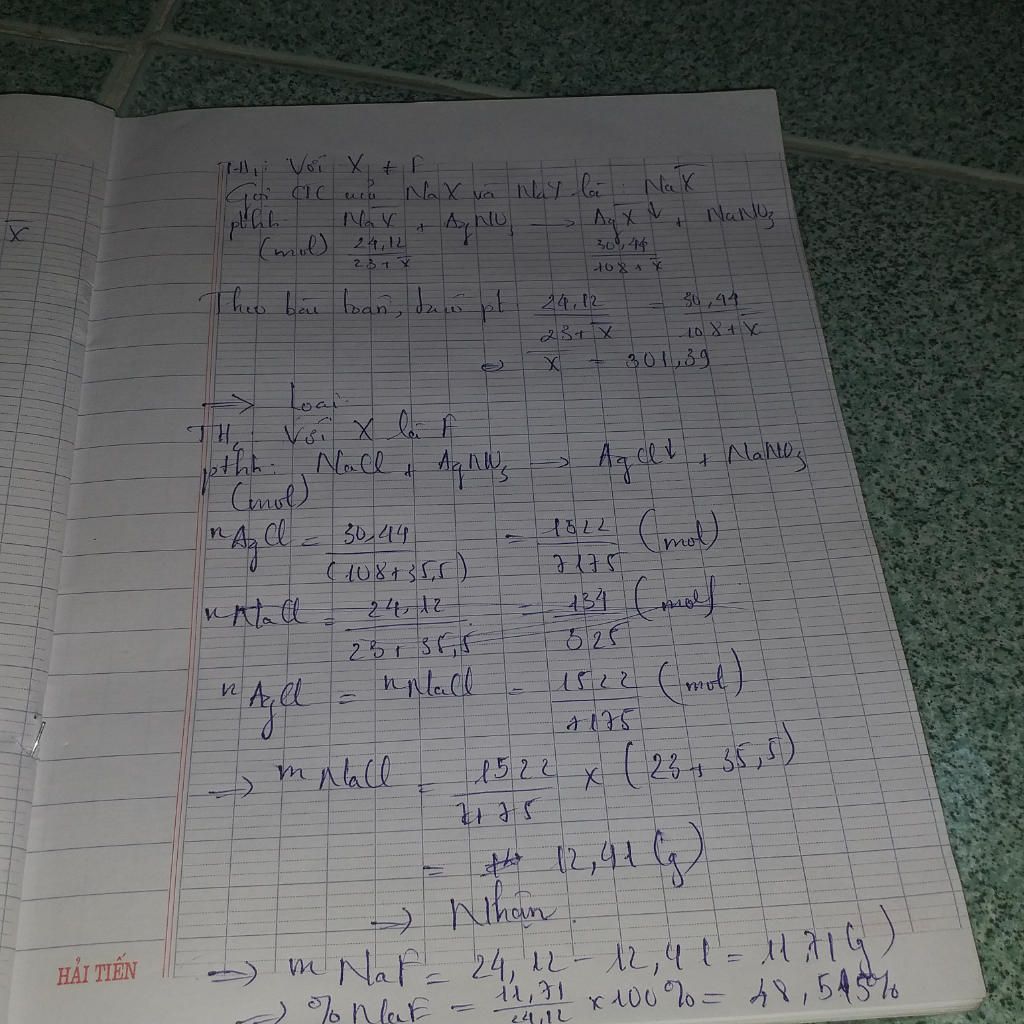 X̅
TH₁: Với X ≠ F
Gọi CTC của NaX và NaY là: NaX̅
pthh: NaX̅ + AgNO₃ → AgX̅↓ + NaNO₃
(mol) 24,12/(23+X̅) 30,44/(108+X̅)
Theo bài toán, ta có pt 24,12/(23+X̅) = 30,44/(108+X̅)
⇔ X̅ = 301,39
⇒ Loại.
TH₂ Với X là F
pthh: NaCl + AgNO₃ → AgCl↓ + NaNO₃
(mol)
nAgCl = 30,44/(108+35,5) = 1522/7175 (mol)
nNaCl = 24,12/(23+35,5) = 134/325 (mol)
nAgCl = nNaCl = 1522/7175 (mol)
→ mNaCl = 1522/7175 x (23+35,5)
= 12,41 (g)
→ Nhận.
⇒ m NaF = 24,12 - 12,41 = 11,71(g)
⇒ % NaF = 11,71/24,12 x 100% = 48,545%
HẢI TIẾN